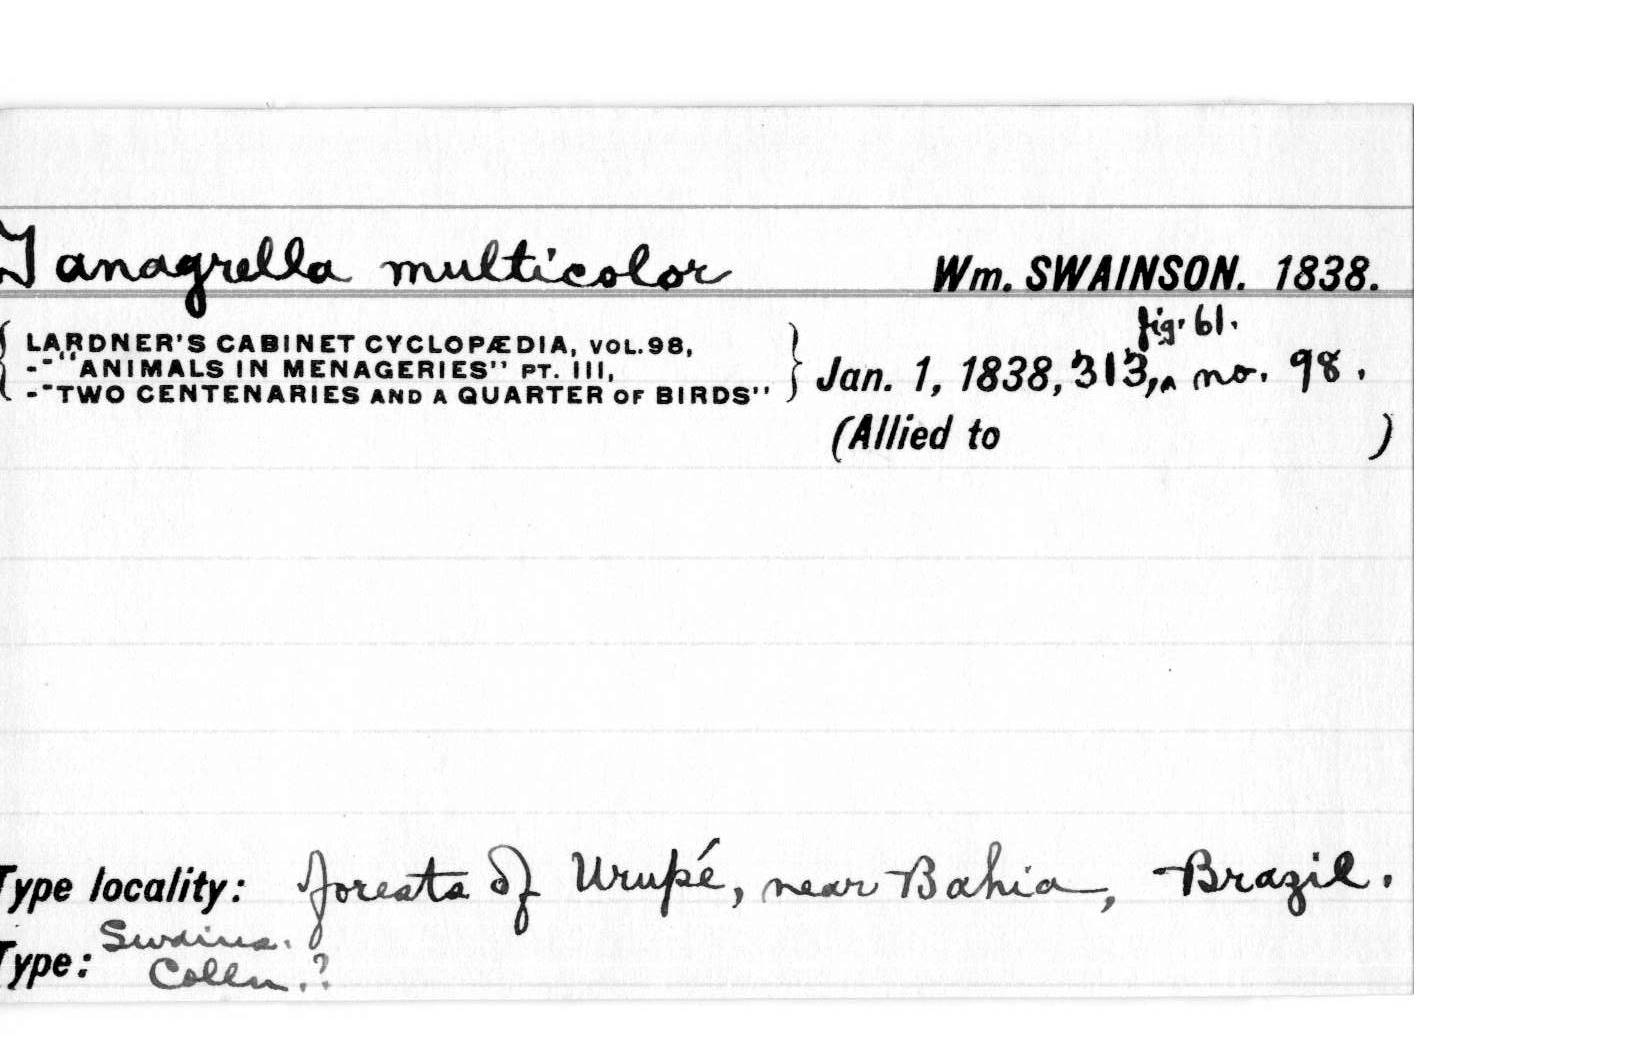 Tanagrella multicolor Wm. SWAINSON. 1838.
fig. 61.
{ LARDNER'S CABINET CYCLOPÆDIA, VOL. 98,
-"ANIMALS IN MENAGERIES" PT. III,
-"TWO CENTENARIES AND A QUARTER OF BIRDS" } Jan. 1, 1838, 313,^ no. 98.
(Allied to )
Type locality: forests of Urupé, near Bahia, Brazil.
Type: Swains.
Colln.?